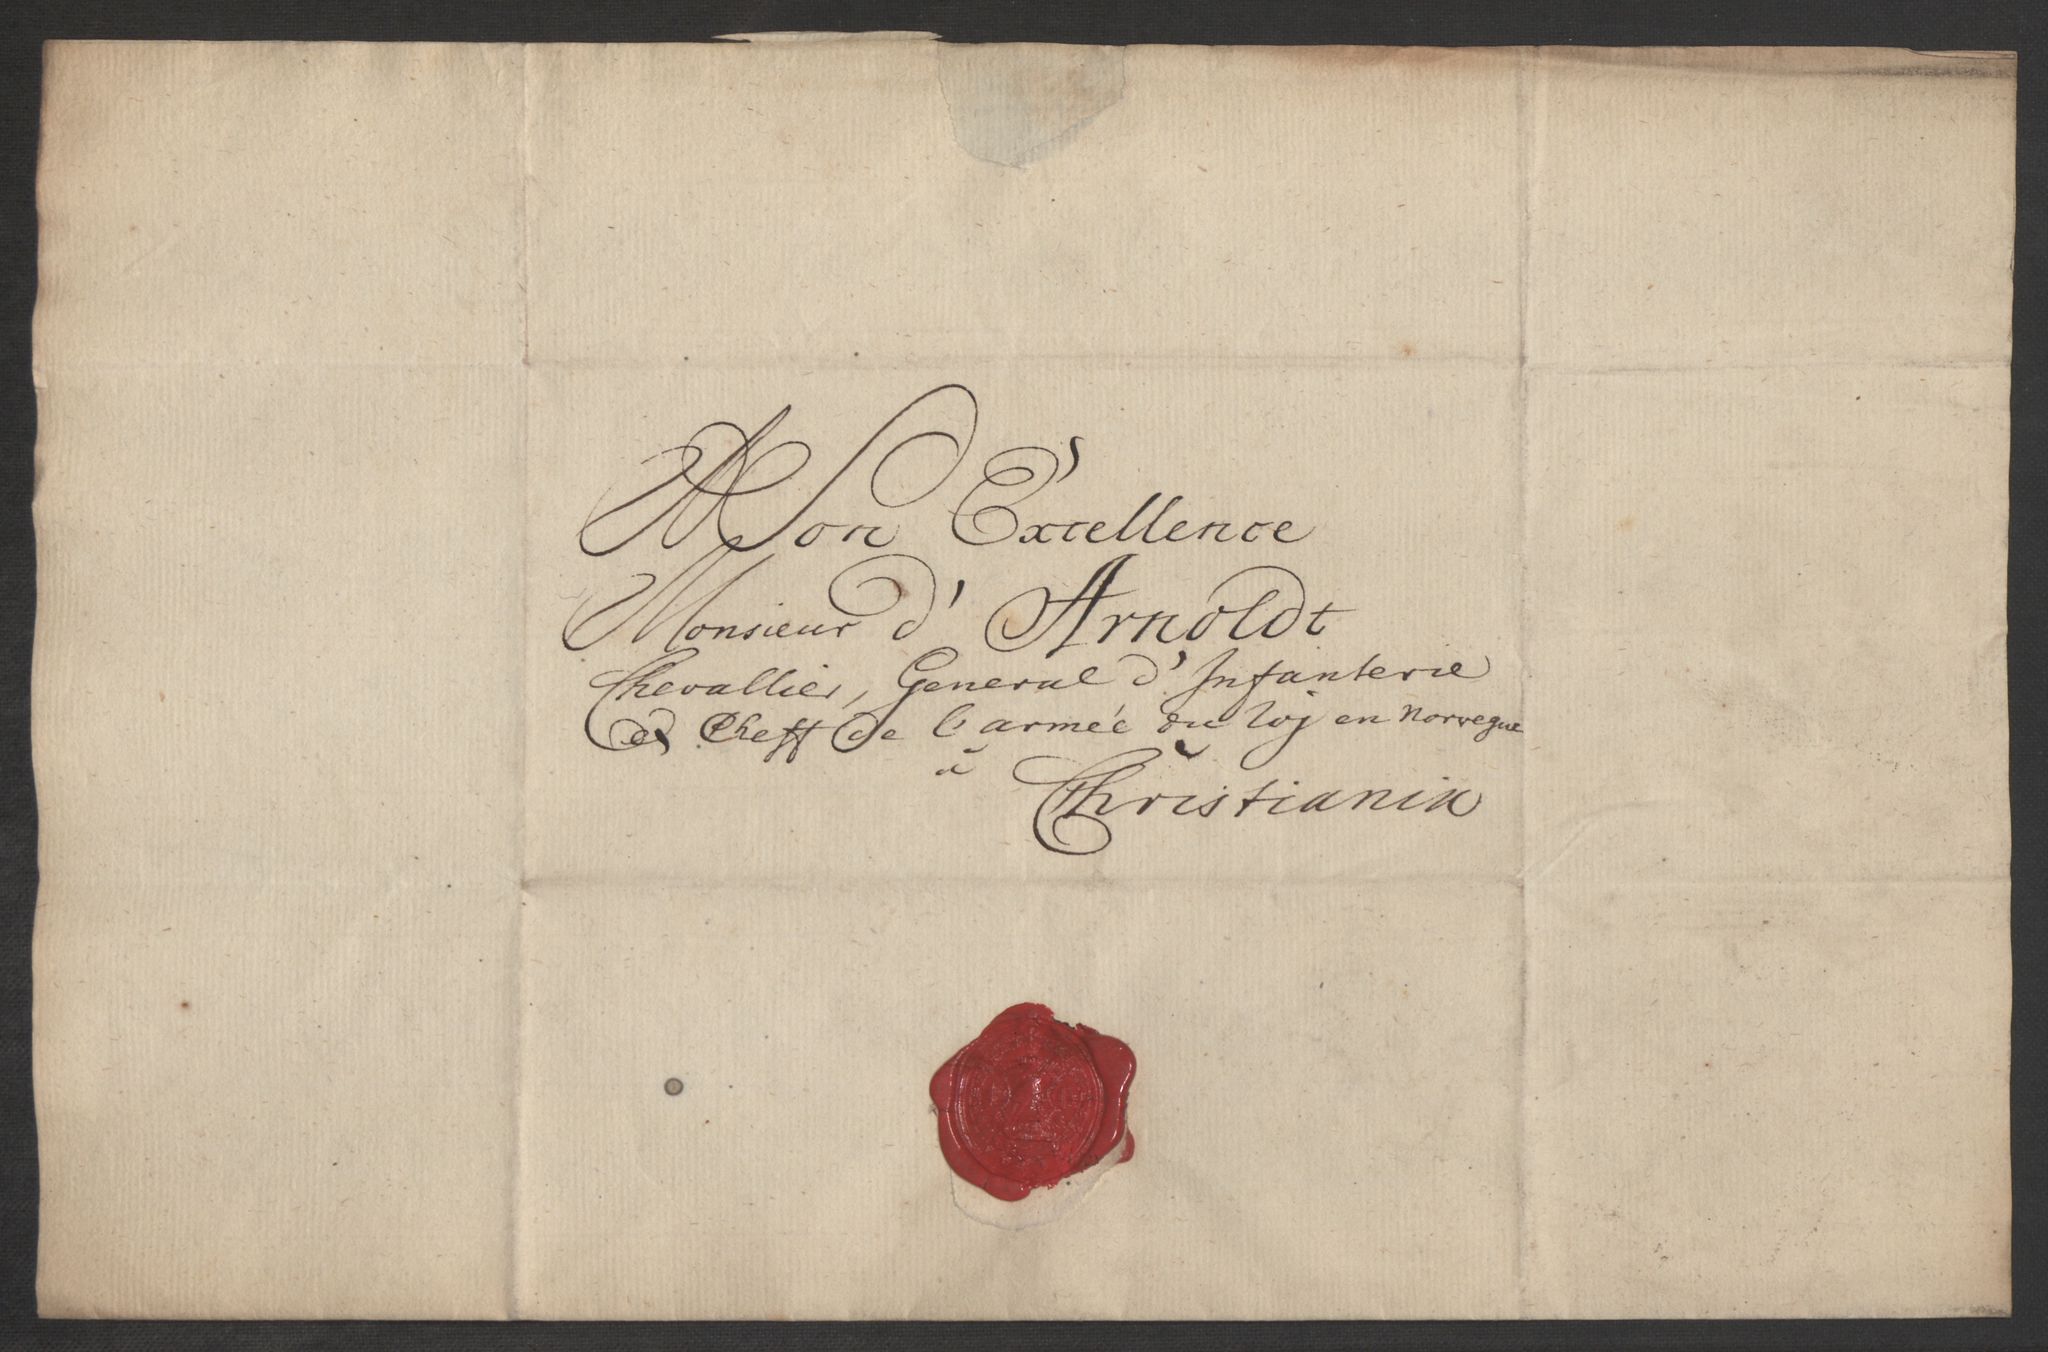 Mon Excellence
Monsieur d' Arnoldt
Chevallier, General d' Infanterie
et Cheff de l'armée du Roy en Norvegue
à
Christiania